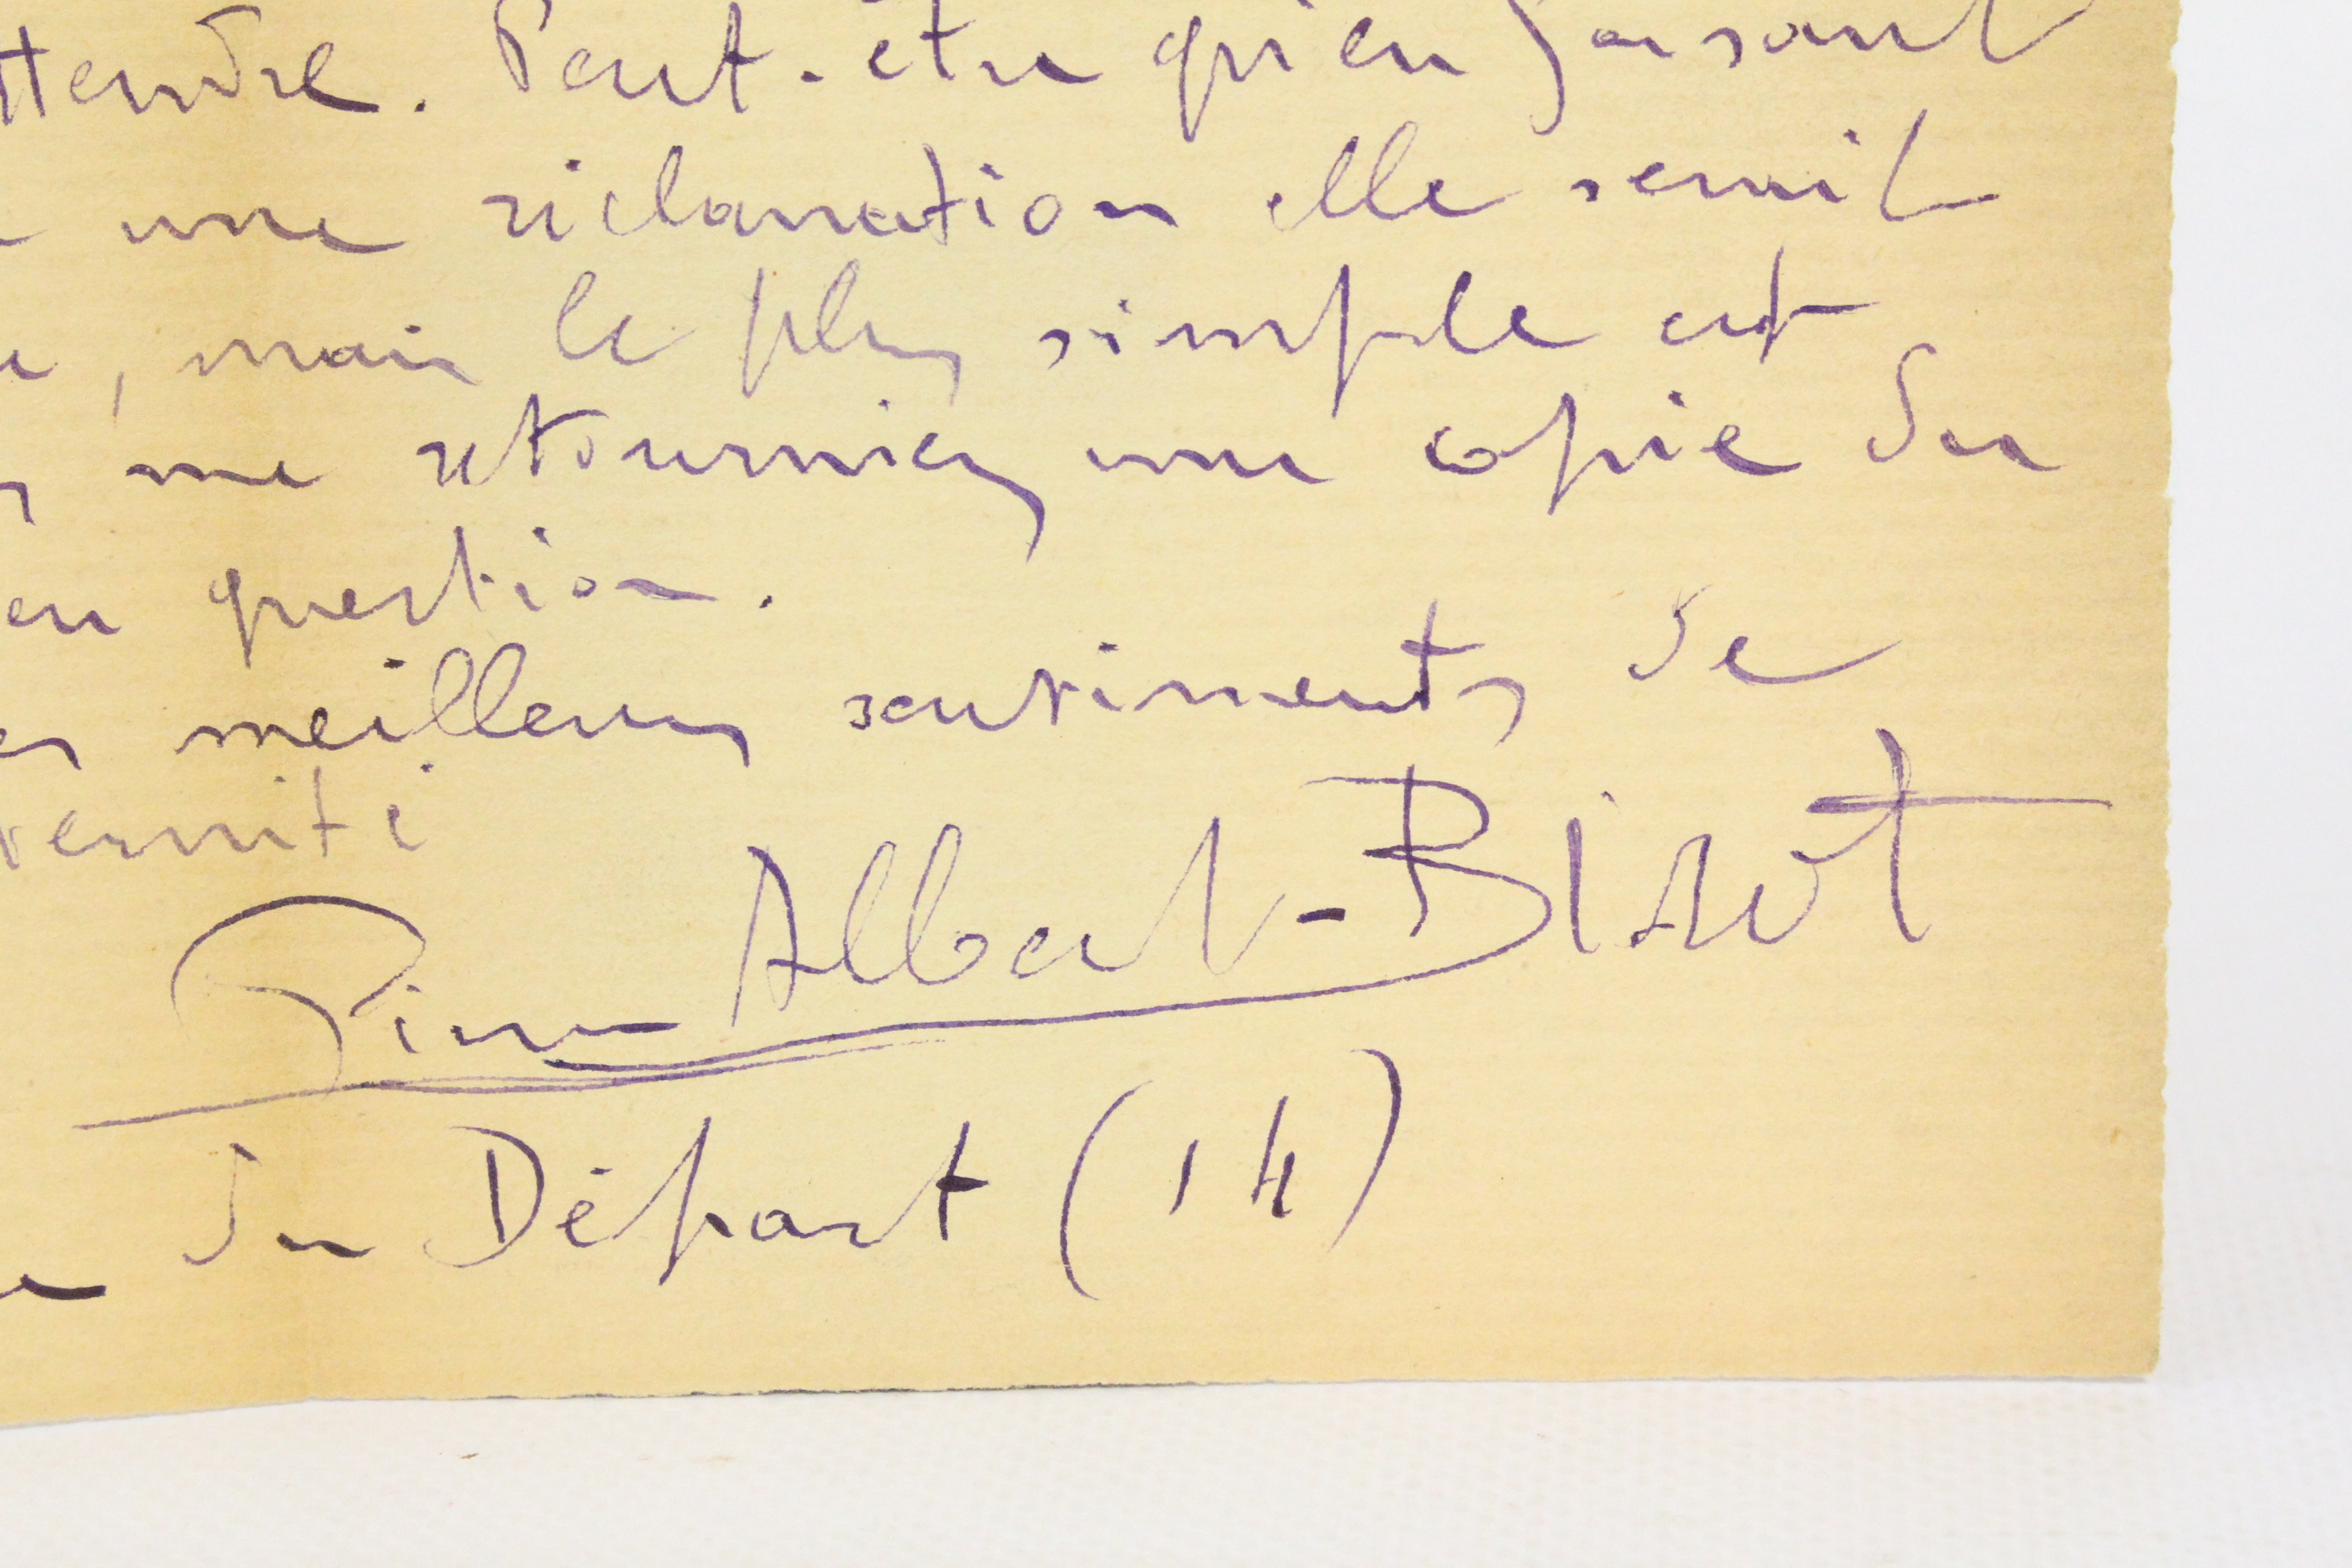 ttendre. Peut-être qu'en faisant
une réclamation elle serait
, mais le plus simple est
me retourniez une copie du
en question.
es meilleurs sentiments de
ternité
Pierre Albert-Birot
du Départ (14)